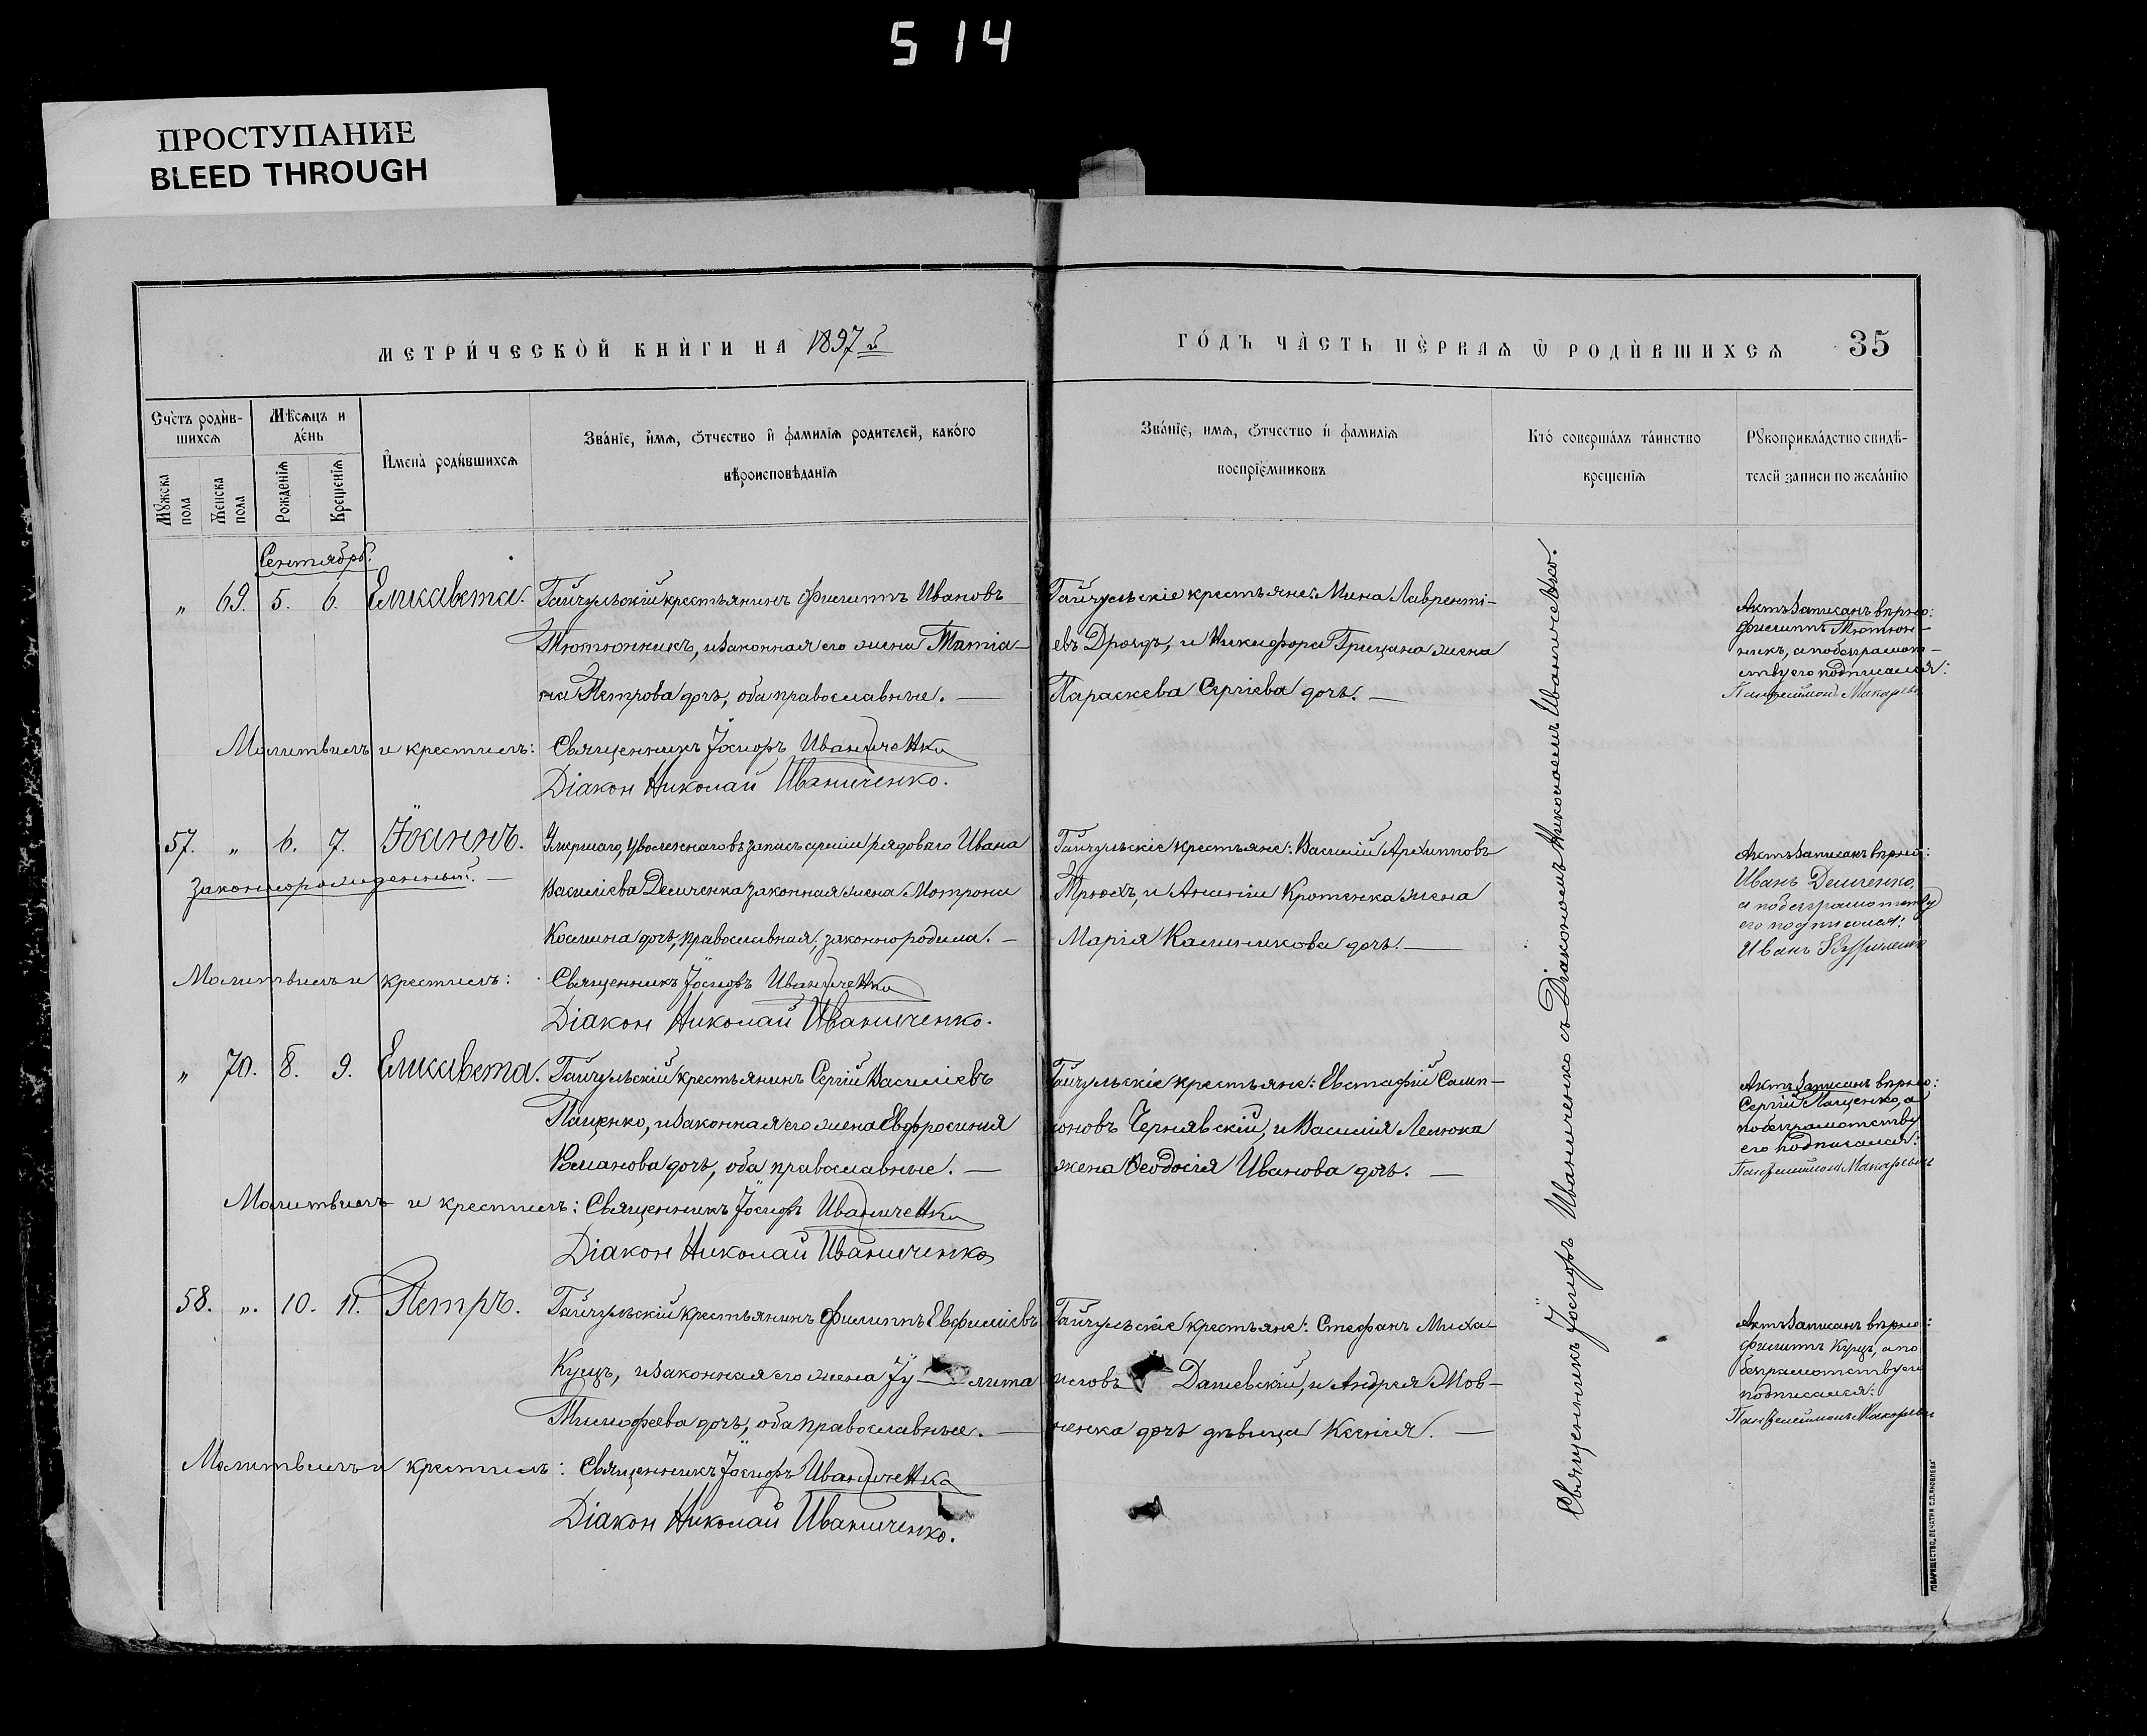 5 14
ПРОСТУПАНИЕ
BLEED THROUGH
МЕТРИ́ЧЕСКОЙ КНИ́ГИ НА 1897 й
ГО́ДЪ ЧА́СТЬ ПЕ́РВАѦ Ѡ РОДИ́ВШИХСѦ 35
Сче́тъ роди́в-
шихсѧ
Мꙋ́жска пола
Же́нска пола
Мѣ́сѧцъ и
де́нь
Рожденїѧ
Крещенїѧ
И҆мена̀ роди́вшихсѧ
Зва́нїе, и҆мѧ, ѻтчество и҆ фамилїѧ родителей, како́го
вѣроисповѣданїѧ
Зва́нїе, имѧ, ѻтчество и҆ фамилїѧ
воспрїе́мниковъ
Кто́ соверша́лъ та́инство
крещенїѧ
Рꙋкоприкла́дство свидѣ́-
телей записи по жела́нїю
Сентябрь.
„ 69. 5. 6. Елисавета. Гайчульскій крестьянинъ Филиппъ Ивановъ
Тютюнникъ, и законная его жена Татіа-
на Петрова дочь, оба православные. —
Молитвилъ и крестилъ: Священникъ Іосифъ Иваниченко
Діакон Николай Иваниченко.
Гайчульскіе крестьяне: Мина Лавренті-
евъ Дроздъ, и Никифора Грицана жена
Параскева Сергіева дочь. —
Актъ записанъ вѣрно:
Филиппъ Тютюн-
никъ, а по безграмот-
ству его подписался:
57. „ 6. 7. Іоаннъ. Умершаго, уволеннаго въ запасъ арміи рядоваго Ивана
законнорожденный. —
Василіева Демченка законная жена Мотрона
Космина дочь, православная, законно родила. —
Молитвилъ и крестилъ: Священникъ Іосифъ Иваниченко
Діакон Николай Иваниченко.
Гайчульскіе крестьяне: Василій Архипповъ
Трюхъ, и Ананіи Кротенка жена
Марія Калинникова дочь. —
Актъ записанъ вѣрно:
Иванъ Демченко,
а по безграмотству
его подписался:
Иванъ
„ 70. 8. 9. Елисавета. Гайчульскій крестьянинъ Сергій Василіевъ
Пащенко, и законная его жена Евфросинія
Романова дочь, оба православные. —
Молитвилъ и крестилъ: Священникъ Іосифъ Иваниченко
Діакон Николай Иваниченко
Гайчульскіе крестьяне: Евстафій Самп-
соновъ Чернявскій, и Василія Лелюка
жена Ѳеодосія Иванова дочь. —
Актъ записанъ вѣрно:
Сергій Пащенко, а
по безграмотству
его подписался:
58. „. 10. 11. Петръ. Гайчульскій крестьянинъ Филиппъ Евфиміевъ
Куцъ, и законная его жена Іу — лита
Тимофеева дочь, оба православные. —
Молитвилъ и крестилъ: Священникъ Іосифъ Иваниченко
Діакон Николай Иваниченко.
Гайчульскіе крестьяне: Стефанъ Миха
иловъ Дашевскій, и Андрея Мов-
ченка дочь дѣвица Ксенія. —
Актъ записанъ вѣрно:
Филиппъ Куцъ, а по
безграмотству его
подписался:
Священникъ Іосифъ Иваниченко съ Діакономъ Николаемъ Иваниченко.